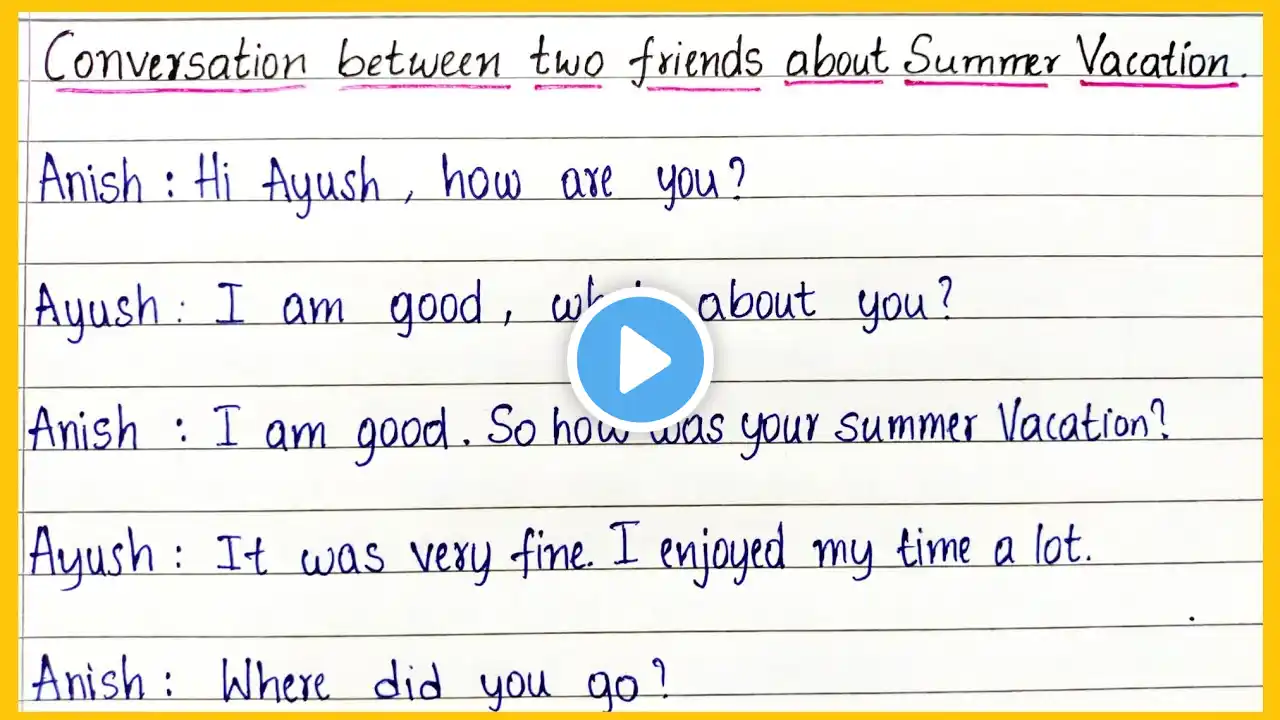 Conversation between two friends about Summer Vacation.
Anish : Hi Ayush , how are you?
Ayush : I am good , about you?
Anish : I am good . So how was your summer Vacation?
Ayush : It was very fine. I enjoyed my time a lot.
Anish : Where did you go?